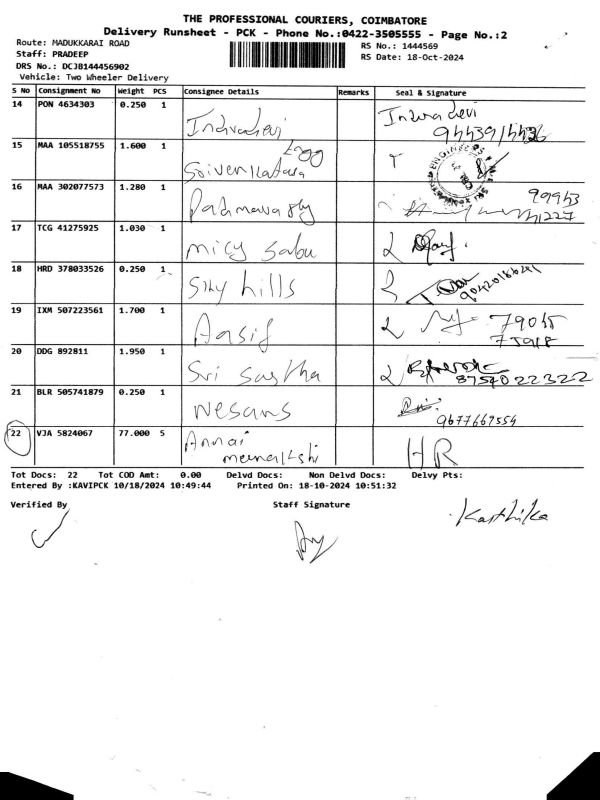 THE PROFESSIONAL COURIERS, COIMBATORE
Delivery Runsheet - PCK - Phone No.:0422-3505555 - Page No.:2
Route: MADUKKARAI ROAD RS No.: 1444569
Staff: PRADEEP RS Date: 18-Oct-2024
DRS No.: DCJB144456902
Vehicle: Two Wheeler Delivery
S No Consignment No Weight PCS Consignee Details Remarks Seal & Signature
14 PON 4634303 0.250 1 Indradevi Indradevi
15 MAA 105518755 1.600 1 Srivenkatara
16 MAA 302077573 1.280 1
17 TCG 41275925 1.030 1 micy sabu
18 HRD 378033526 0.250 1 Sky hills
19 IXM 507223561 1.700 1 Aasif
20 DDG 892811 1.950 1 Sri sastha 8754022322
21 BLR 505741879 0.250 1 Nesans 9677667554
22 VJA 5824067 77.000 5 Annai HR
meenakshi
Tot Docs: 22 Tot COD Amt: 0.00 Delvd Docs: Non Delvd Docs: Delvy Pts:
Entered By :KAVIPCK 10/18/2024 10:49:44 Printed On: 18-10-2024 10:51:32
Verified By Staff Signature
Karthika